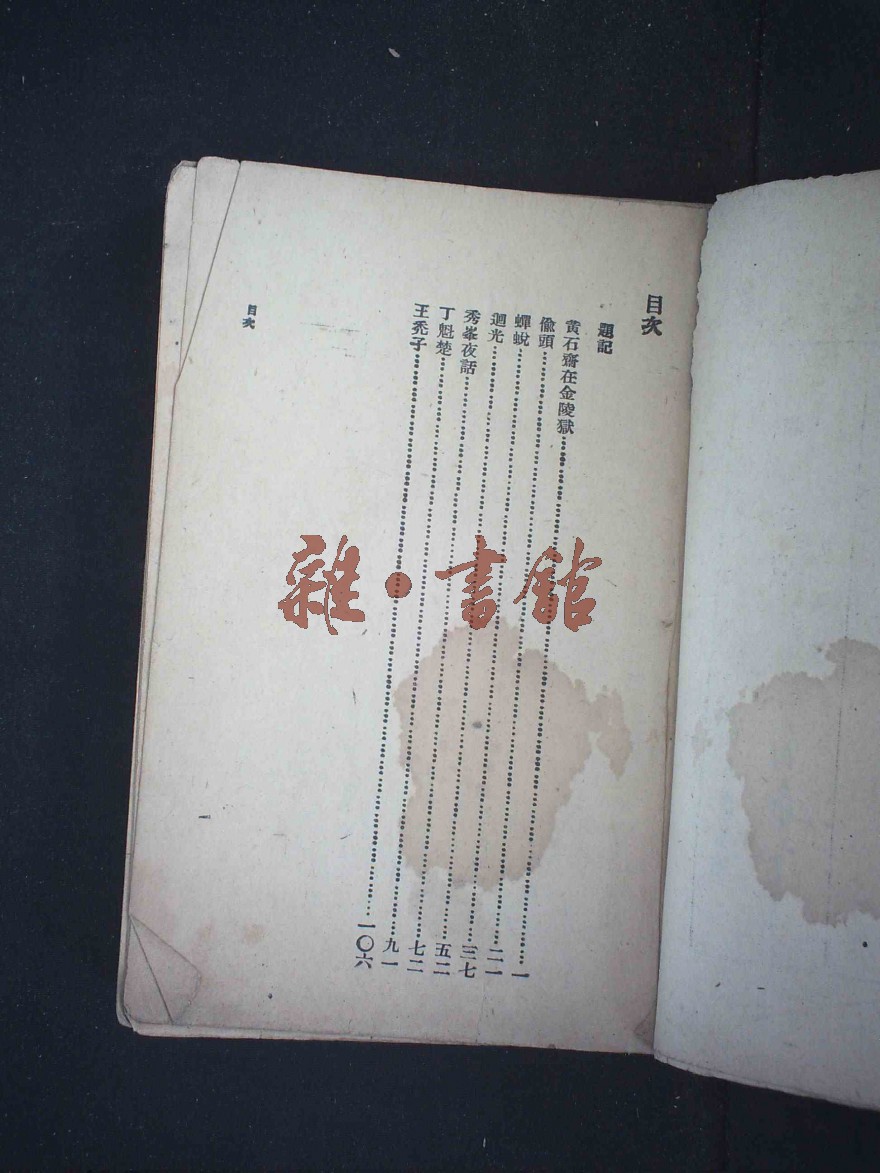 目次
題記
黄石齋在金陵獄……一
偷頭……二一
蟬蛻……三七
迴光……五二
秀峯夜話……七二
丁魁楚……九一
王禿子……一〇六
目次
一
雜·書館